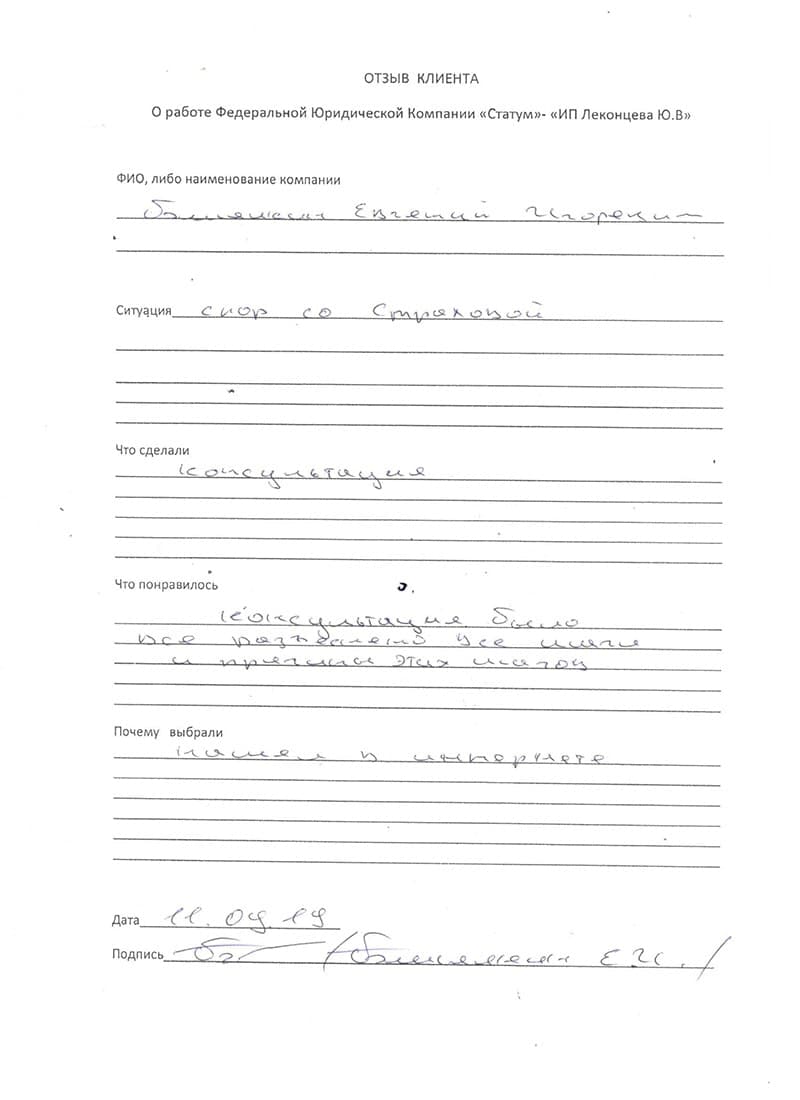 ОТЗЫВ КЛИЕНТА
О работе Федеральной Юридической Компании «Статум»- «ИП Леконцева Ю.В»
ФИО, либо наименование компании
Евгений Игоревич
Ситуация спор со Страховой
Что сделали
консультация
Что понравилось
Консультация была
все шаги
и причины этих шагов
Почему выбрали
нашел в интернете
Дата 11.09.19
Подпись Е.И.